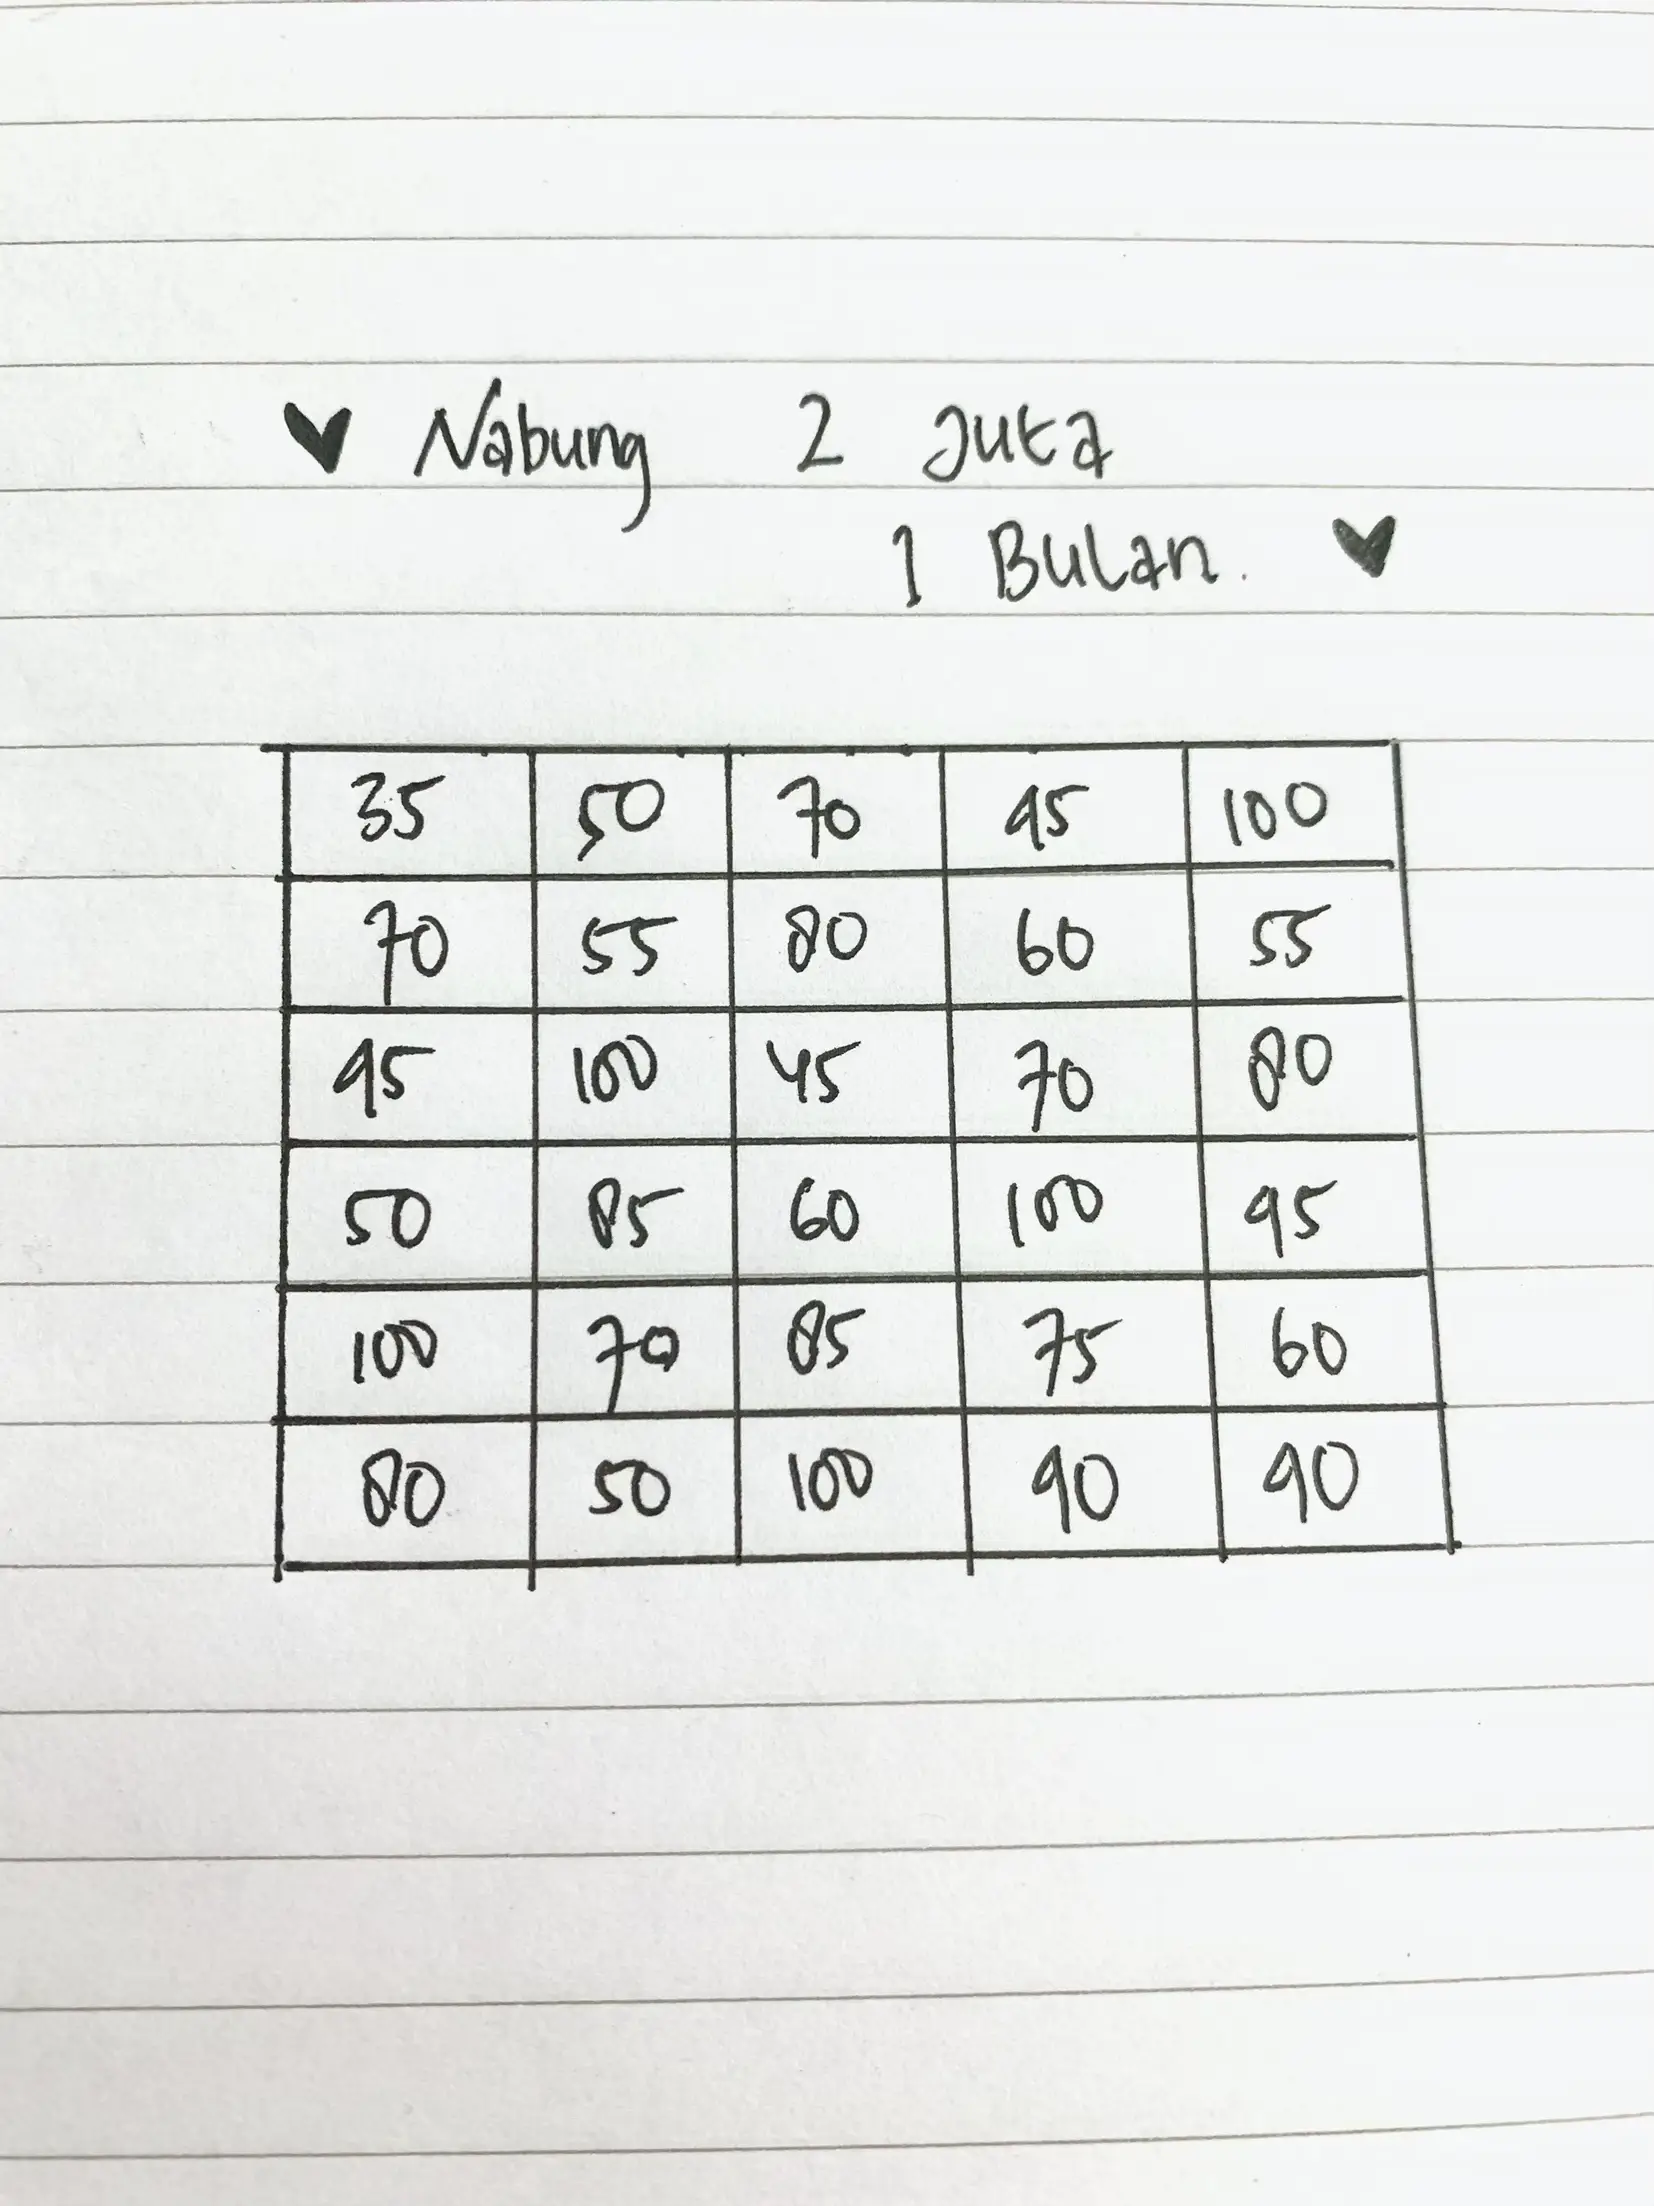 Nabung 2 Juta
1 Bulan.
35 50 70 95 100
70 55 80 60 55
95 100 45 70 80
50 85 60 100 95
100 70 85 75 60
80 50 100 90 90